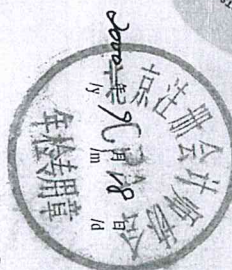 北京注册会计师协会
年检专用章
2000年9月28日
/y /m /d